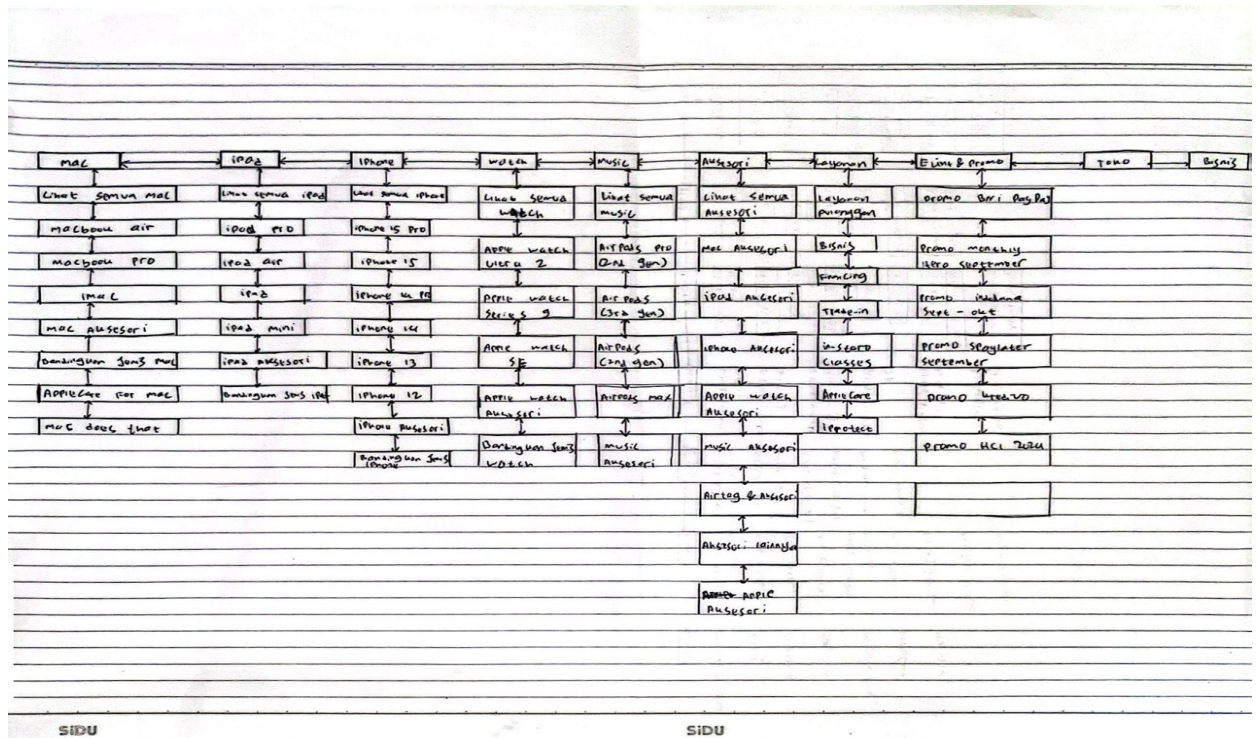 Mac
Lihat Semua Mac
Macbook air
Macbook pro
iMac
Mac Aksesori
Bandingkan Jenis Mac
AppleCare For Mac
Mac does that
iPad
Lihat Semua iPad
iPad Pro
iPad air
iPad
iPad mini
iPad Aksesori
Bandingkan Jenis iPad
iPhone
Lihat Semua iPhone
iPhone 15 Pro
iPhone 15
iPhone 14 Pro
iPhone 14
iPhone 13
iPhone 12
iPhone Aksesori
Bandingkan Jenis
iPhone
Watch
Lihat Semua
Watch
Apple Watch
Ultra 2
Apple Watch
Series 9
Apple Watch
SE
Apple Watch
Aksesori
Bandingkan Jenis
Watch
Music
Lihat Semua
music
AirPods Pro
(2nd gen)
AirPods
(3rd gen)
AirPods
(2nd gen)
AirPods Max
music
Aksesori
Aksesori
Lihat Semua
Aksesori
Mac Aksesori
iPad Aksesori
iPhone Aksesori
Apple Watch
Aksesori
Music Aksesori
Airtag & Aksesori
Aksesori lainnya
Apple
Aksesori
Layanan
Layanan
Bisnis
Trade-in
in-store
Classes
AppleCare
iprotect
Event & Promo
Promo BNI
Promo monthly
Hero September
Promo
Sept - okt
Promo Spaylater
September
promo
promo HCI 2024
Toko
Bisnis
SiDU
SiDU